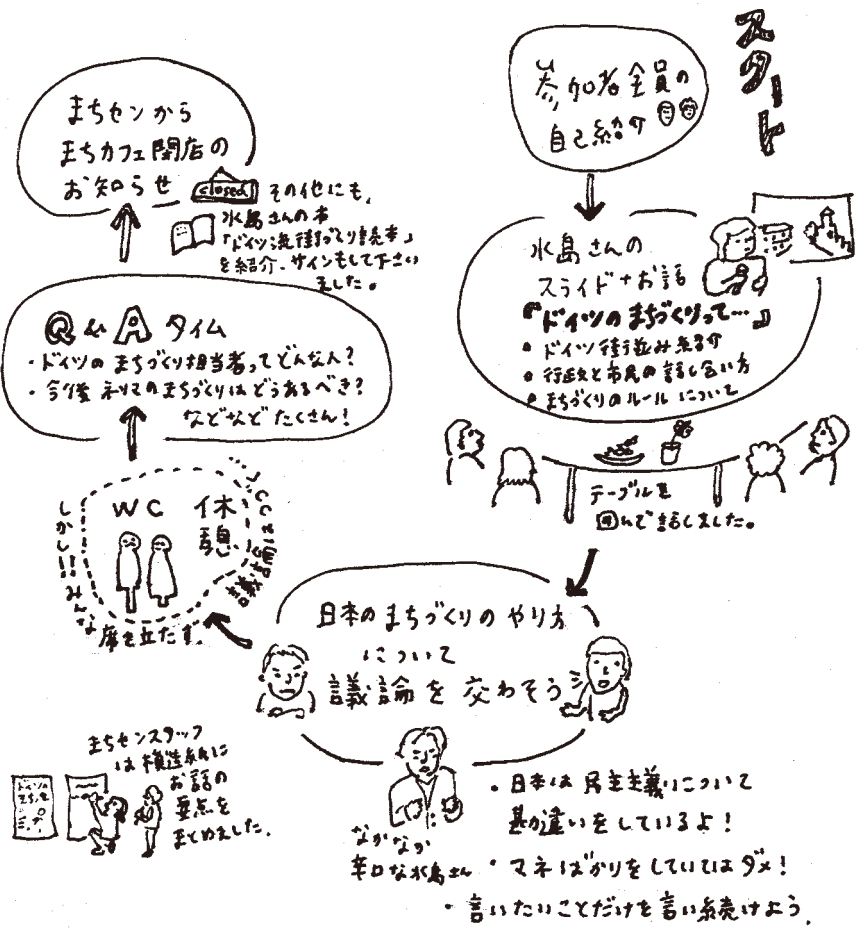 スタート
参加者全員の
自己紹介
水島さんの
スライド+お話
『ドイツのまちづくりって…』
・ドイツ街並み紹介
・行政と市民の話し合い方
・まちづくりのルールについて
テーブルを
囲んで話しました。
日本のまちづくりのやり方
について
議論を交わそう
なかなか
辛口な水島さん
・日本は民主主義について
勘違いをしているよ!
・マネばかりをしていてはダメ!
・言いたいことだけを言い続けよう。
まちセンスタッフ
は模造紙に
お話の
要点を
まとめました。
ドイツの
WC 休
憩
しかし!!みんな
席を立たず、
議論は
Q&Aタイム
・ドイツのまちづくり担当者ってどんな人?
・今後ネリマのまちづくりはどうあるべき?
などなどたくさん!
まちセンから
まちカフェ閉店の
お知らせ
closed
その他にも、
水島さんの本
「ドイツ流街づくり読本」
を紹介、サインもして下さい
ました。